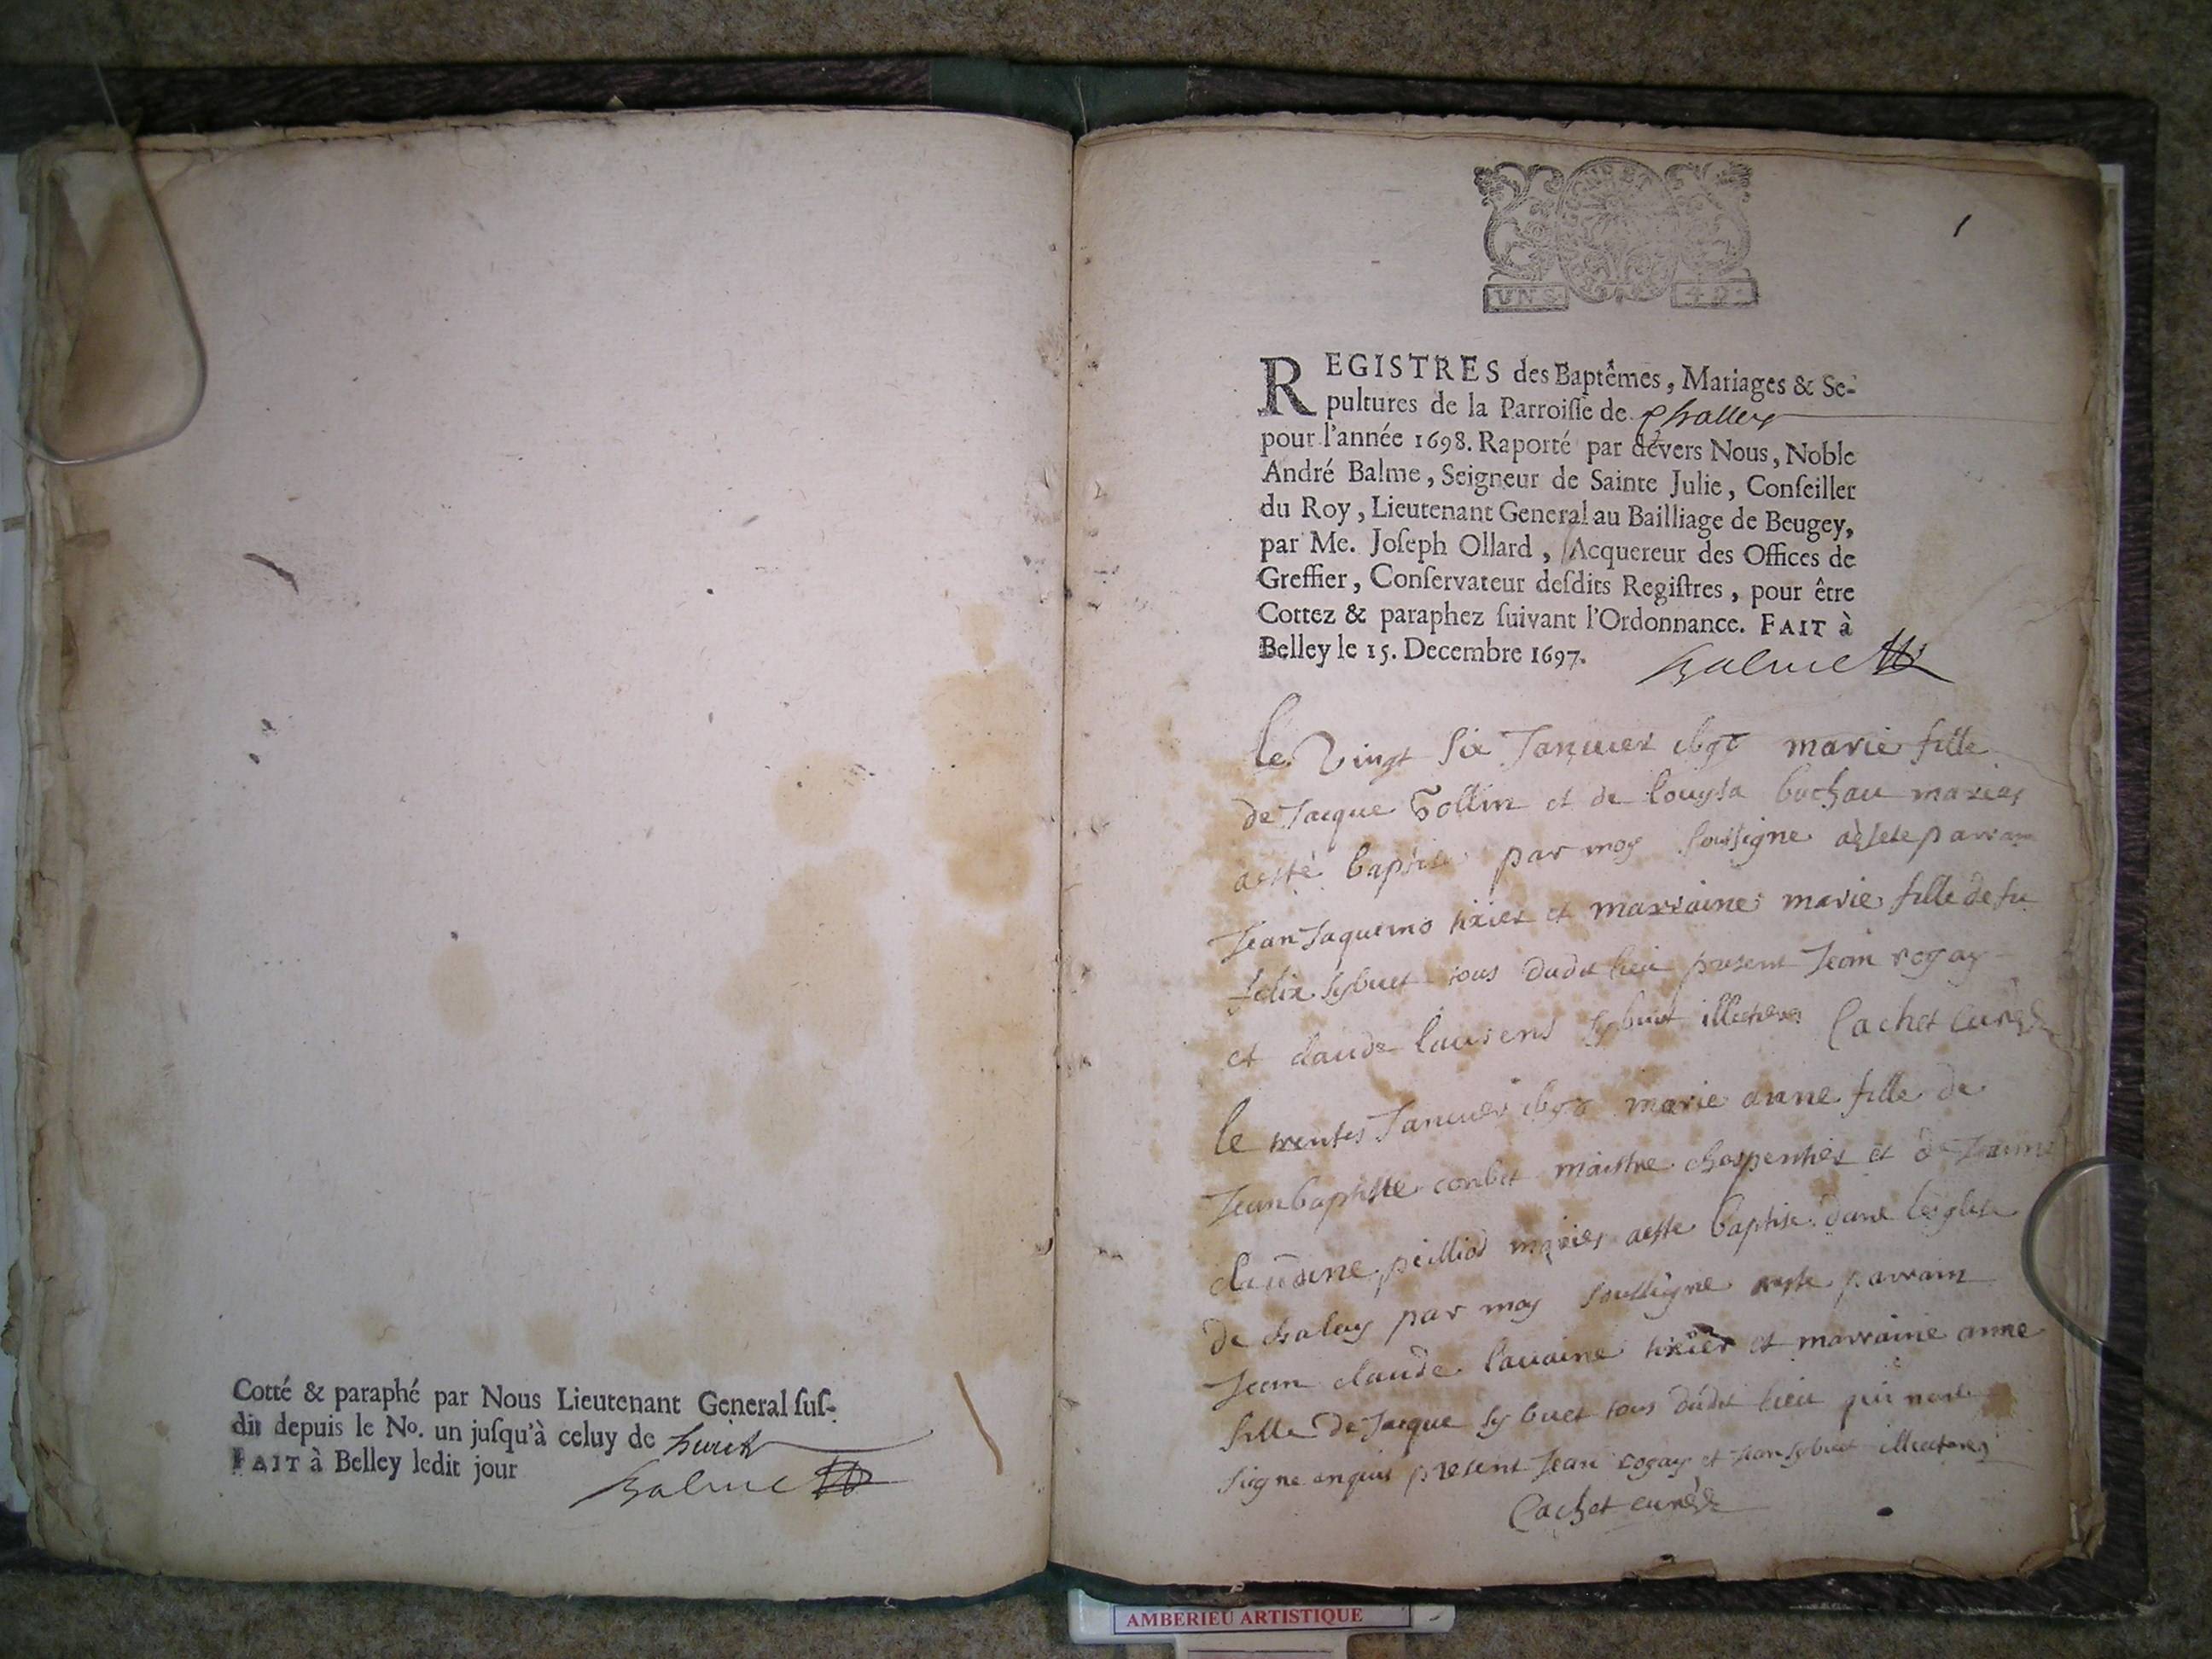 Cotté & paraphé par Nous Lieutenant General suſ-
dit depuis le No. un juſqu'à celuy de huict
FAIT à Belley ledit jour
Balme
1
UN S. 4 D.
REGISTRES des Baptêmes, Mariages & Se-
pultures de la Parroiſſe de Challey
pour l'année 1698. Raporté par devers Nous, Noble
André Balme, Seigneur de Sainte Julie, Conſeiller
du Roy, Lieutenant General au Bailliage de Beugey,
par Me. Joſeph Ollard, Acquereur des Offices de
Greffier, Conſervateur deſdits Regiſtres, pour être
Cottez & paraphez ſuivant l'Ordonnance. FAIT à
Belley le 15. Decembre 1697.
Balme
le Vingt six Januier marie fille
de Jacque et de louysa bochau maries
a esté baptise par moy soussigne parrain
Jean Jaquemo tixier et marraine marie fille de fu
felix sybuet tous dudit lieu present Jean rogay
et claude laurens sybuet illiteres Cachet curé
le trentes Januier marie anne fille de
Jean baptiste corbet maistre charpentier et de
claudine maries a este baptise dans leglise
de chaley par moy soussigne parrain
Jean claude lauaine tixier et marraine anne
fille de Jacque sybuet tous dudit lieu qui nont
signe enquis present Jean rogay et Jean sybuet
Cachet curé
AMBERIEU ARTISTIQUE